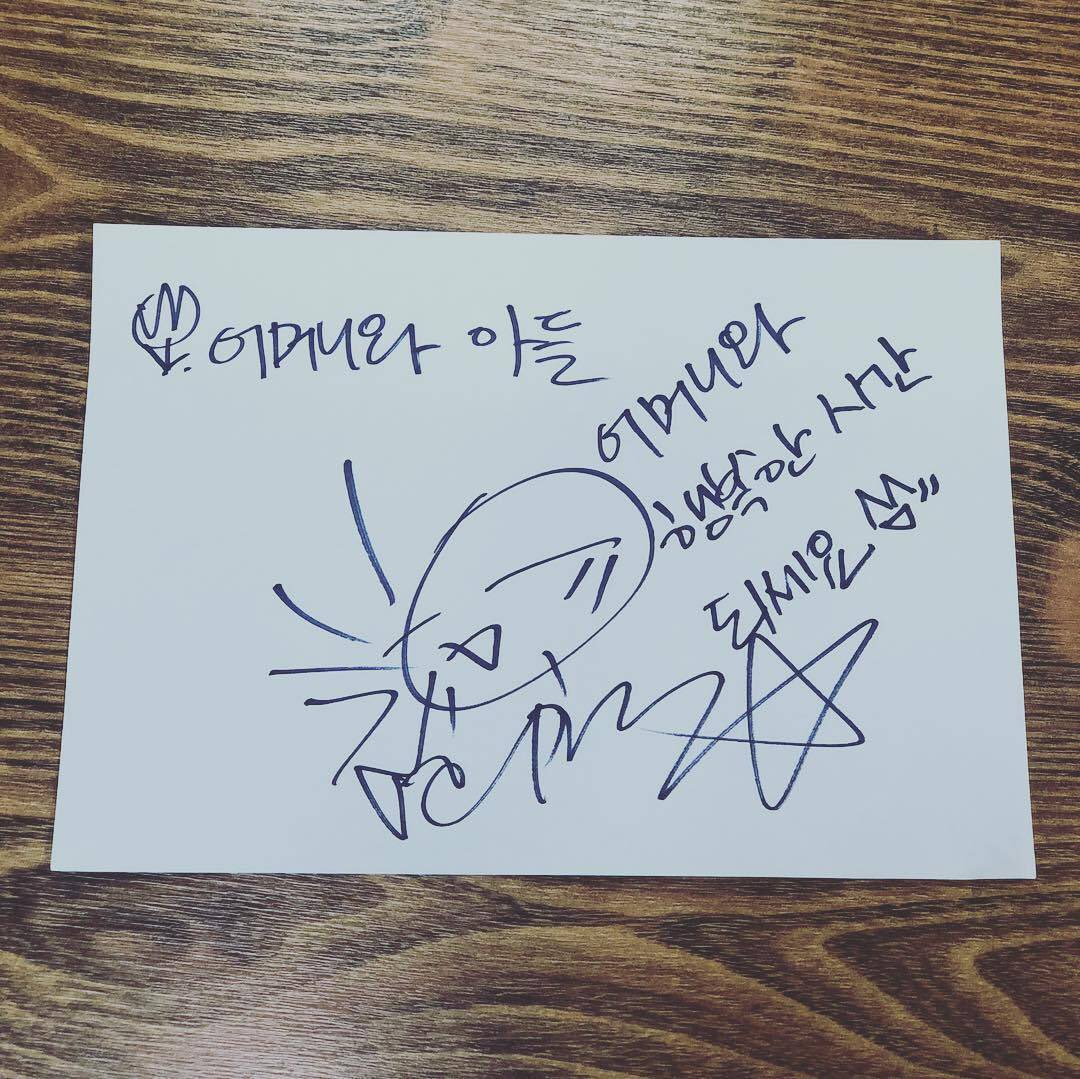 어머니와 아들
어머니와
행복한 시간
되세요